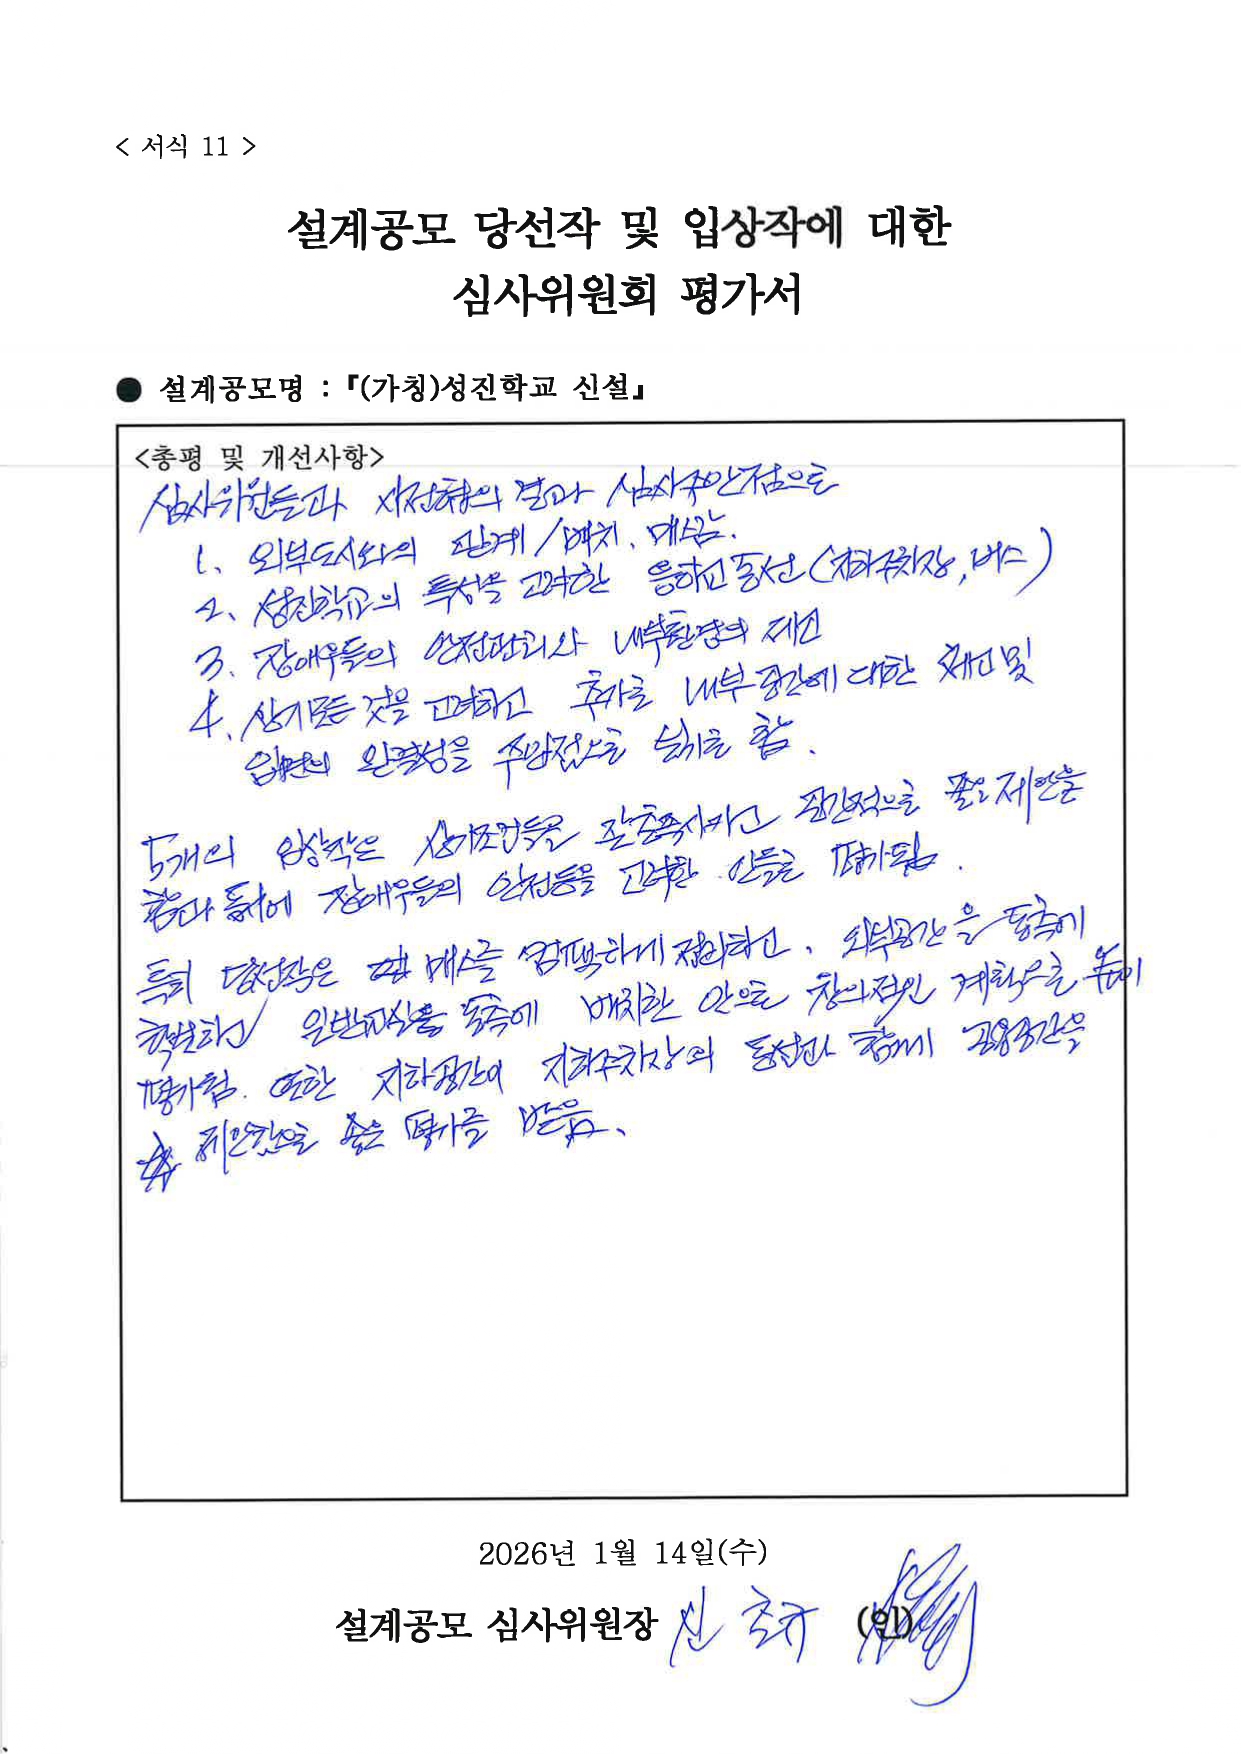 < 서식 11 >
설계공모 당선작 및 입상작에 대한
심사위원회 평가서
● 설계공모명 : 『(가칭)성진학교 신설』
<총평 및 개선사항>
심사위원들과 사전협의 결과 심사주안점으로
1. 외부도시와의 관계/배치, 매스감.
2. 성진학교의 특성을 고려한 등하교동선(지하주차장, 버스)
3. 장애우들의 안전관리와 내부환경의 제고
4. 상기모든 것을 고려하고 추가로 내부공간에 대한 제고 및
입면의 완결성을 주안점으로 삼기로 함.
5개의 입상작은 상기조건들을 잘 충족시키고 공간적으로 좋은 제안을
함과 동시에 장애우들의 안전등을 고려한 안들로 평가됨.
특히 당선작은 매스를 컴팩트하게 정리하고, 외부공간을 동측에
확보하고 일반교실을 동측에 배치한 안으로 창의적인 계획으로 높이
평가함. 또한 지하공간이 지하주차장의 동선과 함께 공용공간을
제안했으로 좋은 평가를 받음.
2026년 1월 14일(수)
설계공모 심사위원장 신 (인)